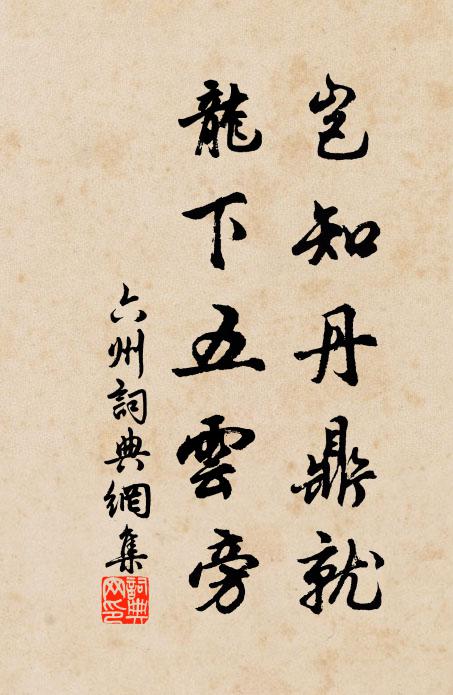 豈知丹鼎就
龍下五雲旁
六州詞典網集
詞典網印